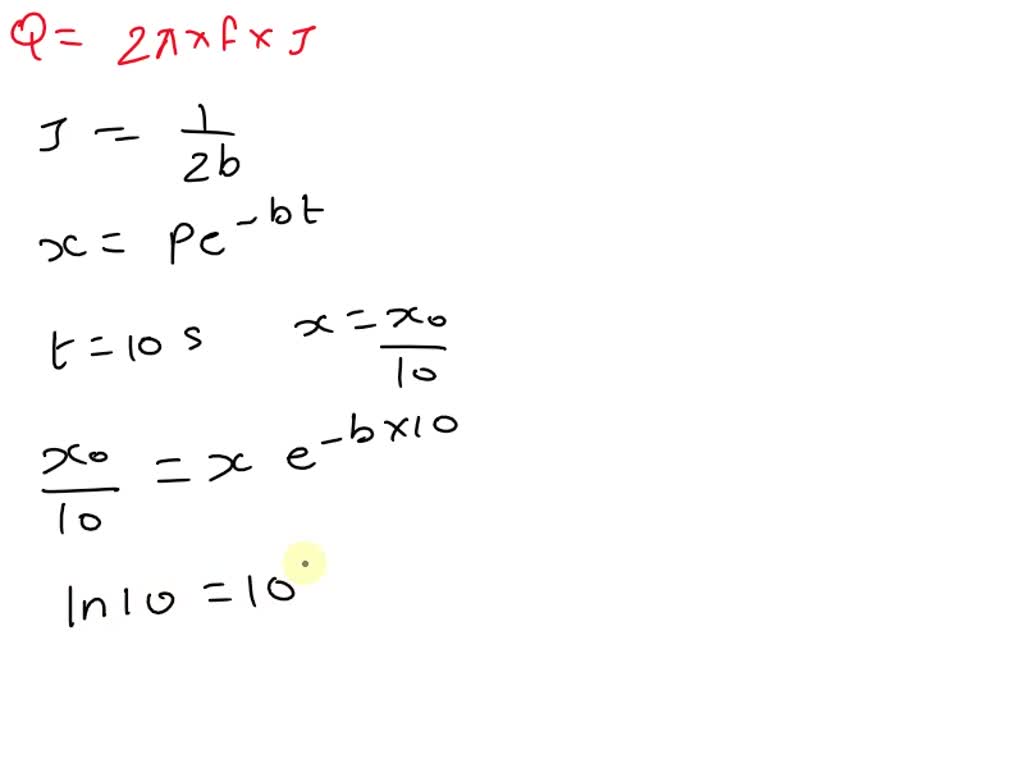 Q = 2π × f × J
J = 1/2b
x = Pe^-bt
t = 10 s x = x₀/10
x₀/10 = x e^-b×10
ln10 = 10